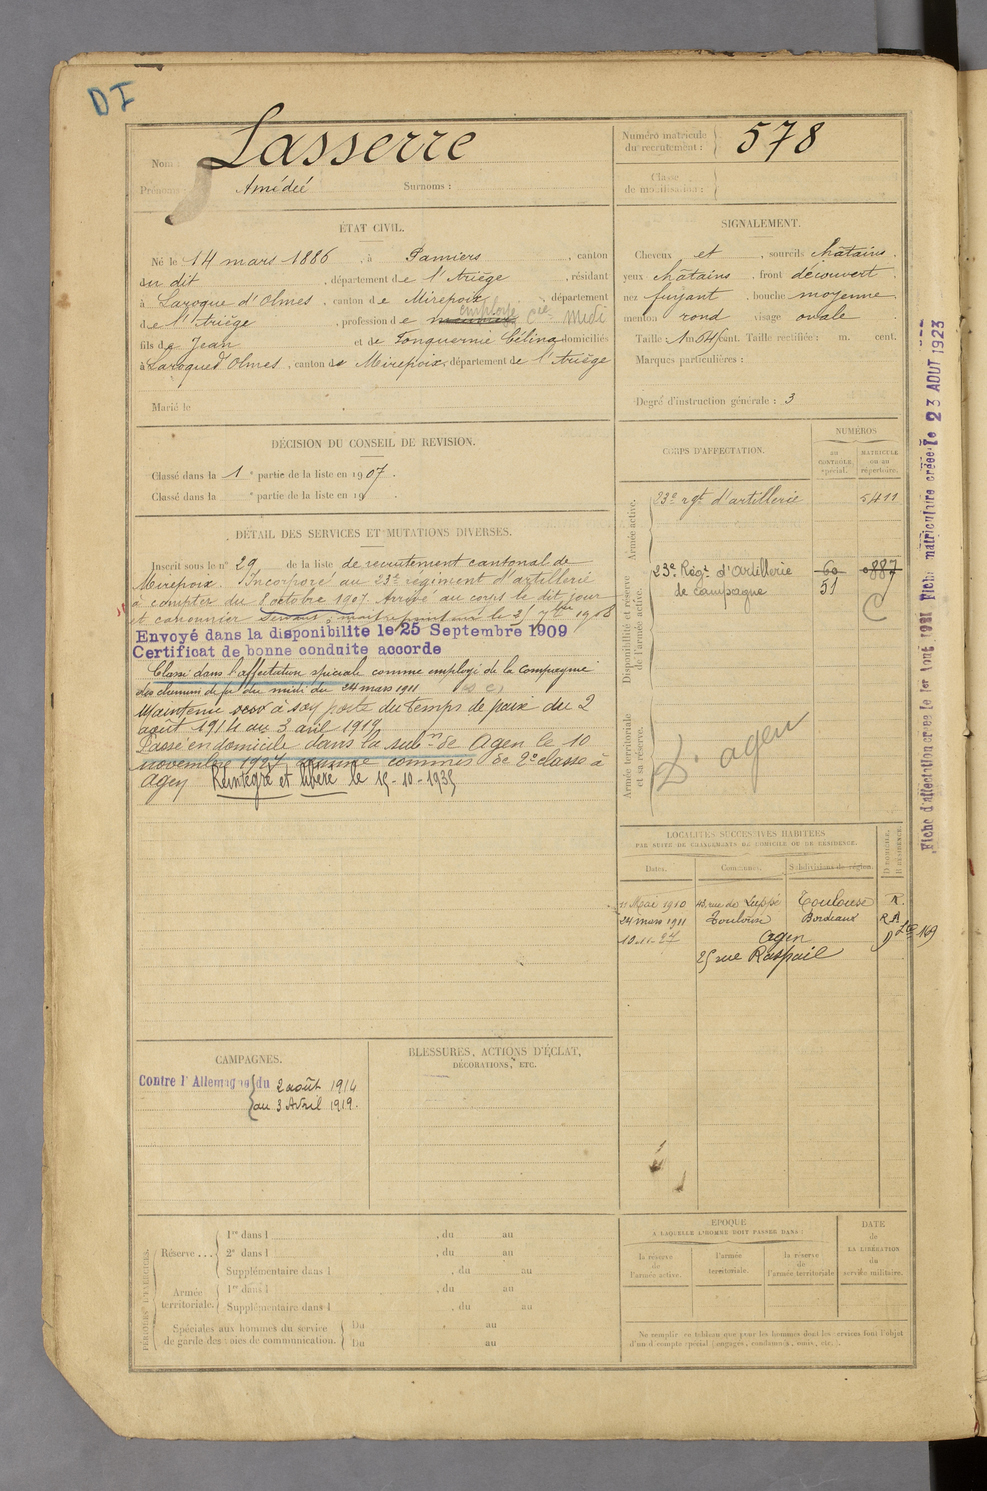 DI
Nom : Lasserre
Prénoms : Amédée Surnoms :
Numéro matricule du recrutement : 578
Classe de mobilisation :
ÉTAT CIVIL.
Né le 14 mars 1886, à Pamiers, canton
du dit, département de l'Ariège, résidant
à Laroque d'Olmes, canton de Mirepoix, département
de l'Ariège, profession de employé Cie Midi
fils de Jean et de Célina domiciliés
à Laroque d'Olmes, canton de Mirepoix, département de l'Ariège
Marié le
SIGNALEMENT.
Cheveux et, sourcils châtains.
yeux châtains, front découvert
nez fuyant, bouche moyenne
menton rond visage ovale
Taille : 1m 64 cent. Taille rectifiée : m. cent.
Marques particulières :
Degré d'instruction générale : 3
DÉCISION DU CONSEIL DE REVISION.
Classé dans la 1e partie de la liste en 1907.
Classé dans la e partie de la liste en 19
DÉTAIL DES SERVICES ET MUTATIONS DIVERSES.
Inscrit sous le n° 29 de la liste de recrutement cantonal de
Mirepoix. Incorporé au 23e régiment d'artillerie
à compter du 8 octobre 1907. Arrivé au corps le dit jour
et canonnier servant, le 25 7bre 1908
Envoyé dans la disponibilite le 25 Septembre 1909
Certificat de bonne conduite accorde
Classé dans l'affectation spéciale comme employé de la Compagnie
des chemins de fer du midi du 24 mars 1911
Maintenu à son poste du temps de paix du 2
août 1914 au 3 avril 1919
Passé en domicile dans la subon de Agen le 10
novembre 1927 comme commis de 2e classe à
Agen Réintégré et libéré le 15-10-1935
CORPS D'AFFECTATION.
NUMÉROS
AU CONTRÔLE spécial.
MATRICULE ou au répertoire.
Armée active.
23e rgt d'artillerie 5411
Disponibilité et réserve de l'armée active.
23e Régt d'Artillerie 60 0887
de Campagne 51
C
Armée territoriale et sa réserve.
D. agen
LOCALITÉS SUCCESSIVES HABITÉES
PAR SUITE DE CHANGEMENTS DE DOMICILE OU DE RÉSIDENCE.
Dates. Communes. Subdivisions de région. D domicile. R résidence.
11 Mai 1910 43, rue de Luppé Toulouse R.
24 mars 1911 Toulouse Bordeaux R A
10-11-27 Agen D
25 rue Raspail
Fiche d'affectation créée le 1er Août 1921 Fiche matriculaire créée le 23 AOUT 1923
CAMPAGNES.
Contre l'Allemagne du 2 août 1914
au 3 Avril 1919.
BLESSURES, ACTIONS D'ÉCLAT,
DÉCORATIONS, ETC.
PÉRIODES D'EXERCICES.
Réserve ...
1re dans l , du au
2e dans l , du au
Supplémentaire dans l , du au
Armée territoriale.
1re dans l , du au
Supplémentaire dans l , du au
Spéciales aux hommes du service de garde des voies de communication.
Du au
Du au
ÉPOQUE
A LAQUELLE L'HOMME DOIT PASSER DANS :
la réserve de l'armée active.
l'armée territoriale.
la réserve de l'armée territoriale
DATE de LA LIBÉRATION du service militaire.
Ne remplir ce tableau que pour les hommes dont les services font l'objet
d'un décompte spécial (engagés, condamnés, omis, etc.).